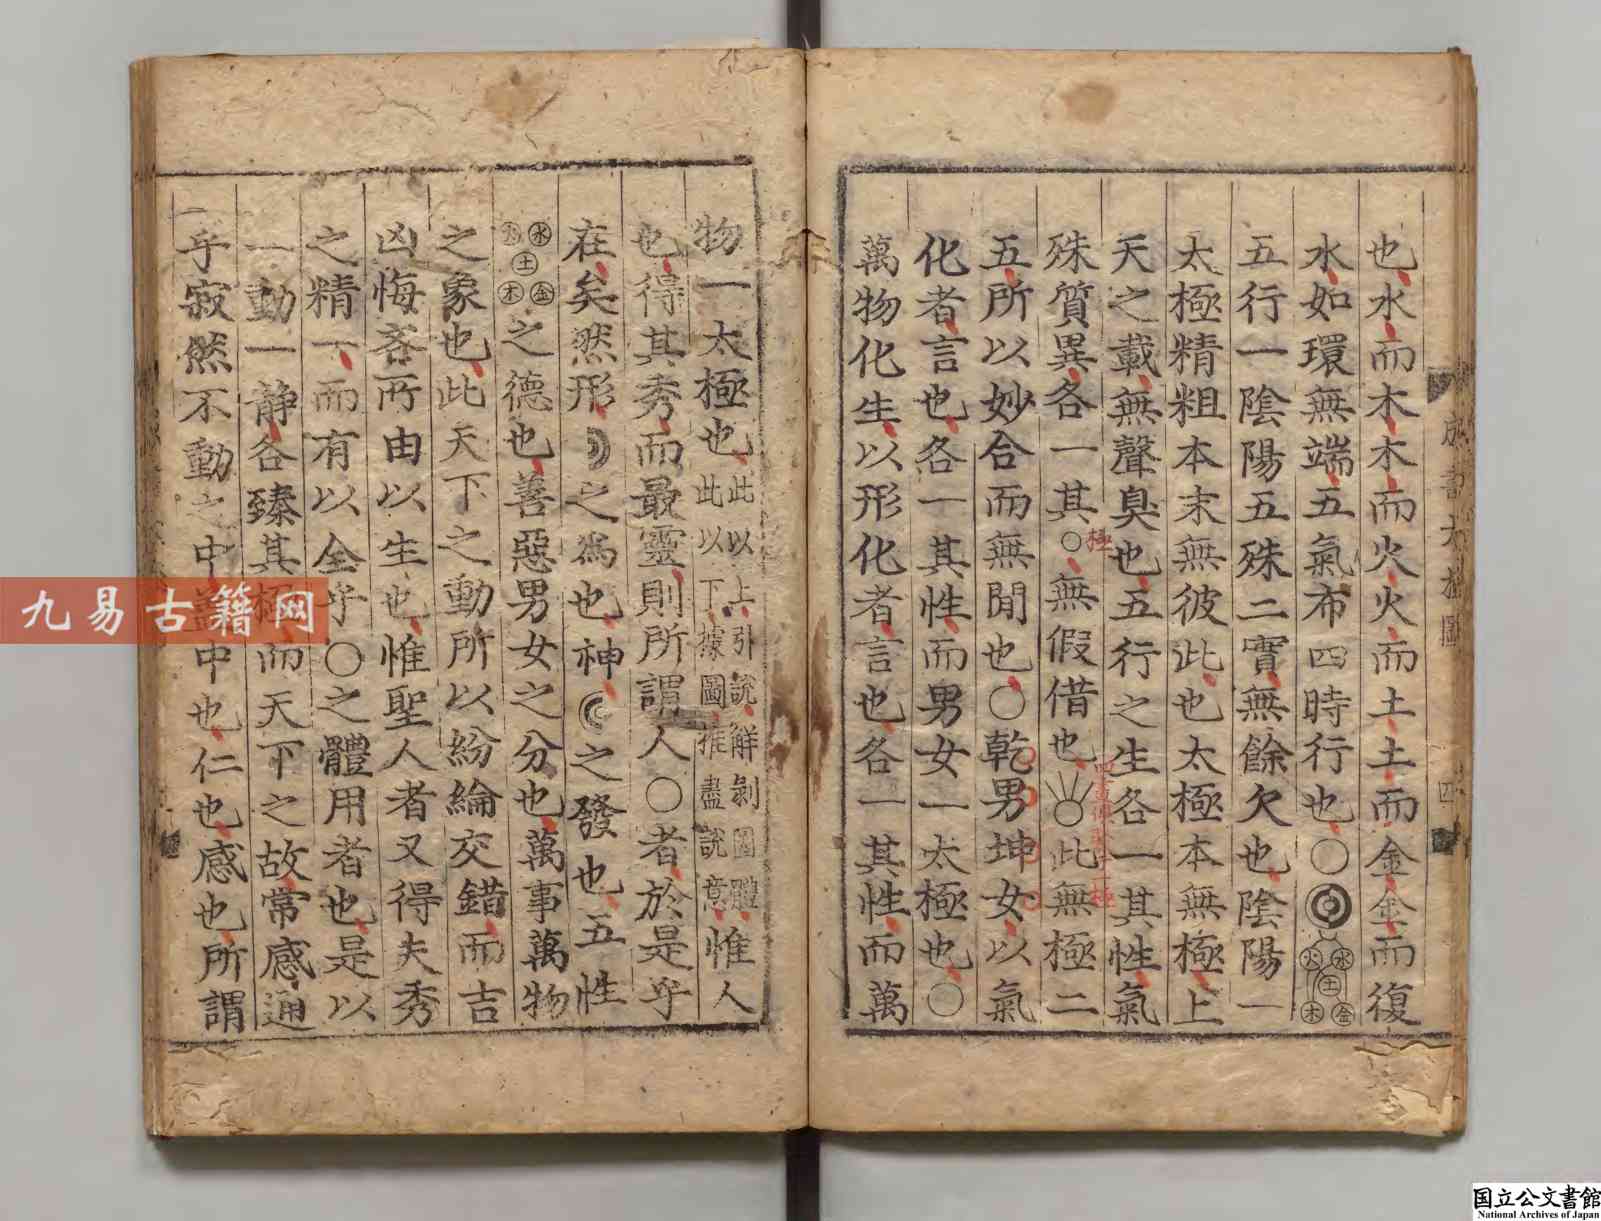 也水而木木而火火而土土而金金而復
水如環無端五氣布四時行也○◎水火土金木
五行一陰陽五殊二實無餘欠也陰陽一
太極精粗本末無彼此也太極本無極上
天之載無聲臭也五行之生各一其性氣
殊質異各一其○無假借也○此無極二
極
五所以妙合而無閒也○乾男坤女以氣
化者言也各一其性而男女一太極也○
萬物化生以形化者言也各一其性而萬
四
物一太極也此以上引說解剝圖體此以下據圖推盡說意惟人
也得其秀而最靈則所謂人○者於是乎
在矣然形之爲也神之發也五性
水火土金木之德也善惡男女之分也萬事萬物
之象也此天下之動所以紛綸交錯而吉
凶悔吝所由以生也惟聖人者又得夫秀
之精一而有以全乎○之體用者也是以
一動一静各臻其極而天下之故常感通
乎寂然不動之中蓋中也仁也感也所謂
九易古籍网
国立公文書館
National Archives of Japan